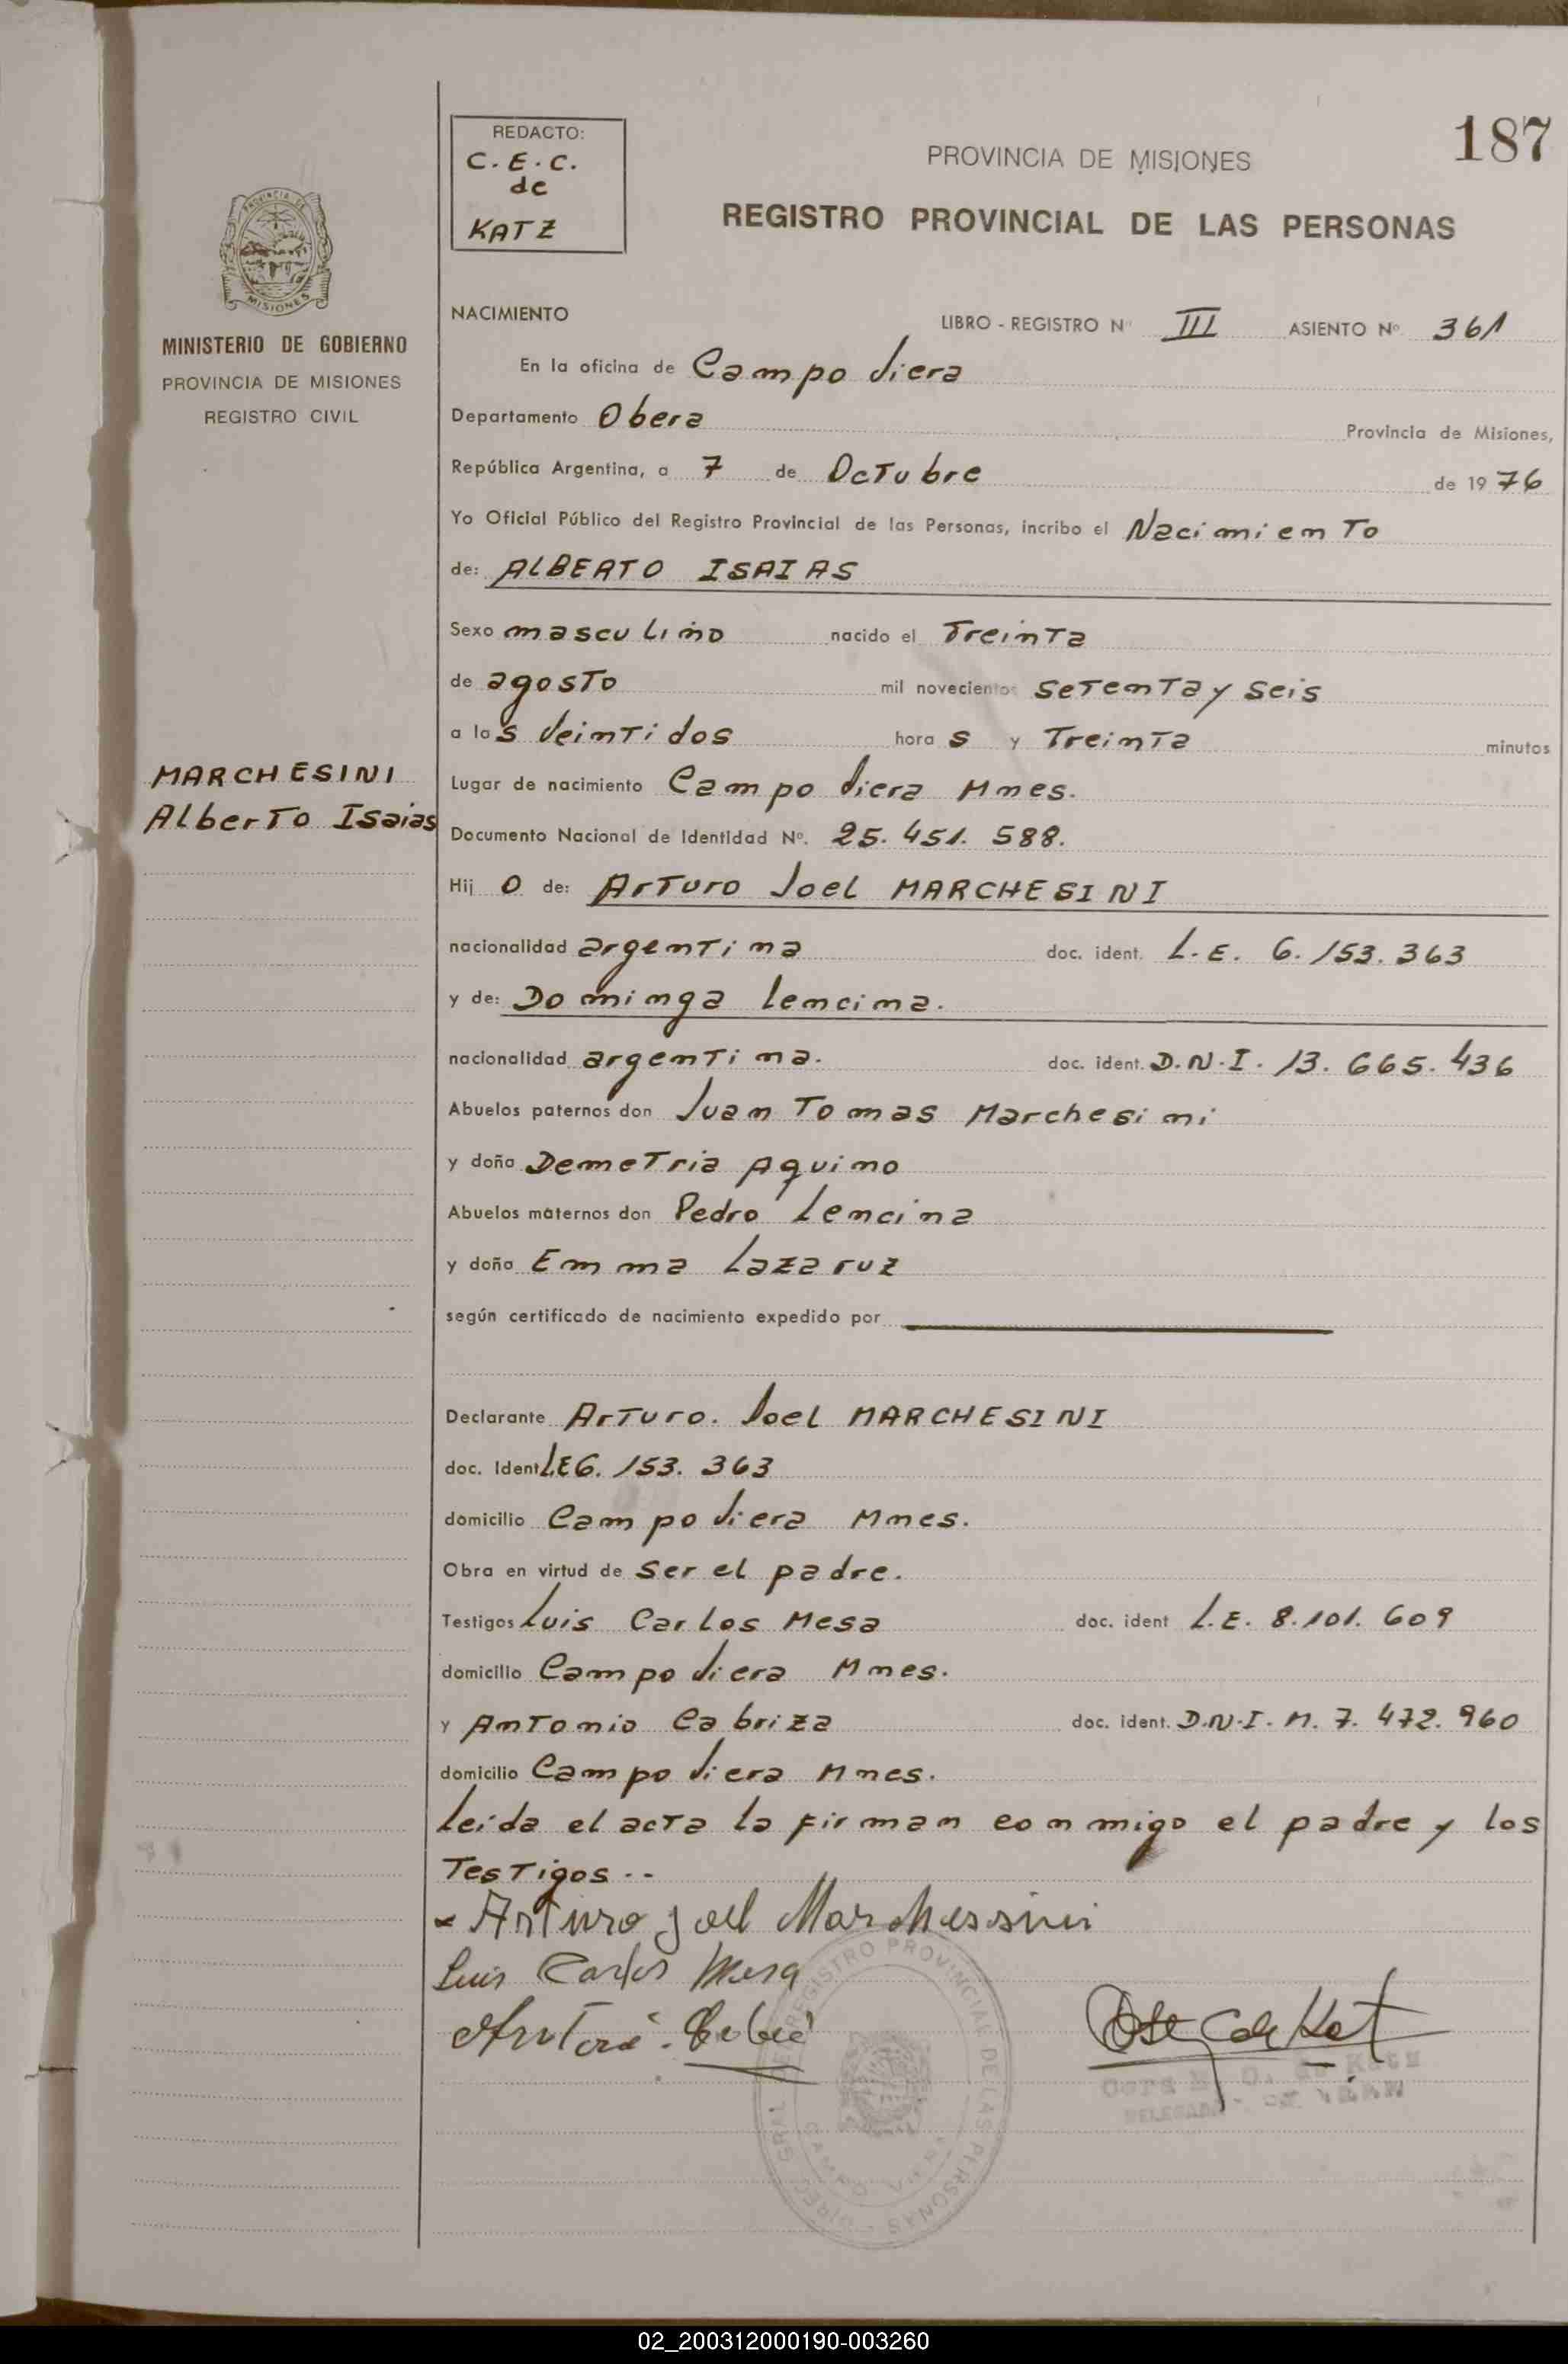 187
REDACTO:
C.E.C.
de
KATZ
PROVINCIA DE MISIONES
REGISTRO PROVINCIAL DE LAS PERSONAS
MISIONES
MINISTERIO DE GOBIERNO
PROVINCIA DE MISIONES
REGISTRO CIVIL
MARCHESINI
Alberto Isaias
NACIMIENTO LIBRO - REGISTRO Nº III ASIENTO Nº 361
En la oficina de Campo Viera
Departamento Obera Provincia de Misiones,
República Argentina, a 7 de Octubre de 1976
Yo Oficial Público del Registro Provincial de las Personas, incribo el Nacimiento
de: ALBERTO ISAIAS
Sexo masculino nacido el Treinta
de agosto mil novecientos setenta y seis
a las Veintidos horas y Treinta minutos
Lugar de nacimiento Campo Viera Mnes.
Documento Nacional de Identidad Nº. 25.451.588.
Hijo de: Arturo Joel MARCHESINI
nacionalidad argentina doc. ident. L.E. 6.153.363
y de: Dominga Lencina.
nacionalidad argentina. doc. ident. D.N.I. 13.665.436
Abuelos paternos don Juan Tomas Marchesini
y doña Demetria Aquino
Abuelos maternos don Pedro Lencina
y doña Emma Lazaruz
según certificado de nacimiento expedido por
Declarante Arturo. Joel MARCHESINI
doc. Ident L.E 6.153.363
domicilio Campo Viera Mnes.
Obra en virtud de ser el padre.
Testigos Luis Carlos Mesa doc. ident L.E. 8.101.609
domicilio Campo Viera Mnes.
y Antonio Cabriza doc. ident. D.N.I. M. 7.472.960
domicilio Campo Viera Mnes.
Leida el acta la firman conmigo el padre y los
Testigos..
Arturo Joel Marchessini
Luis Carlos Mesa
DIREC. GRAL. DEL REGISTRO PROVINCIAL DE LAS PERSONAS
02_200312000190-003260